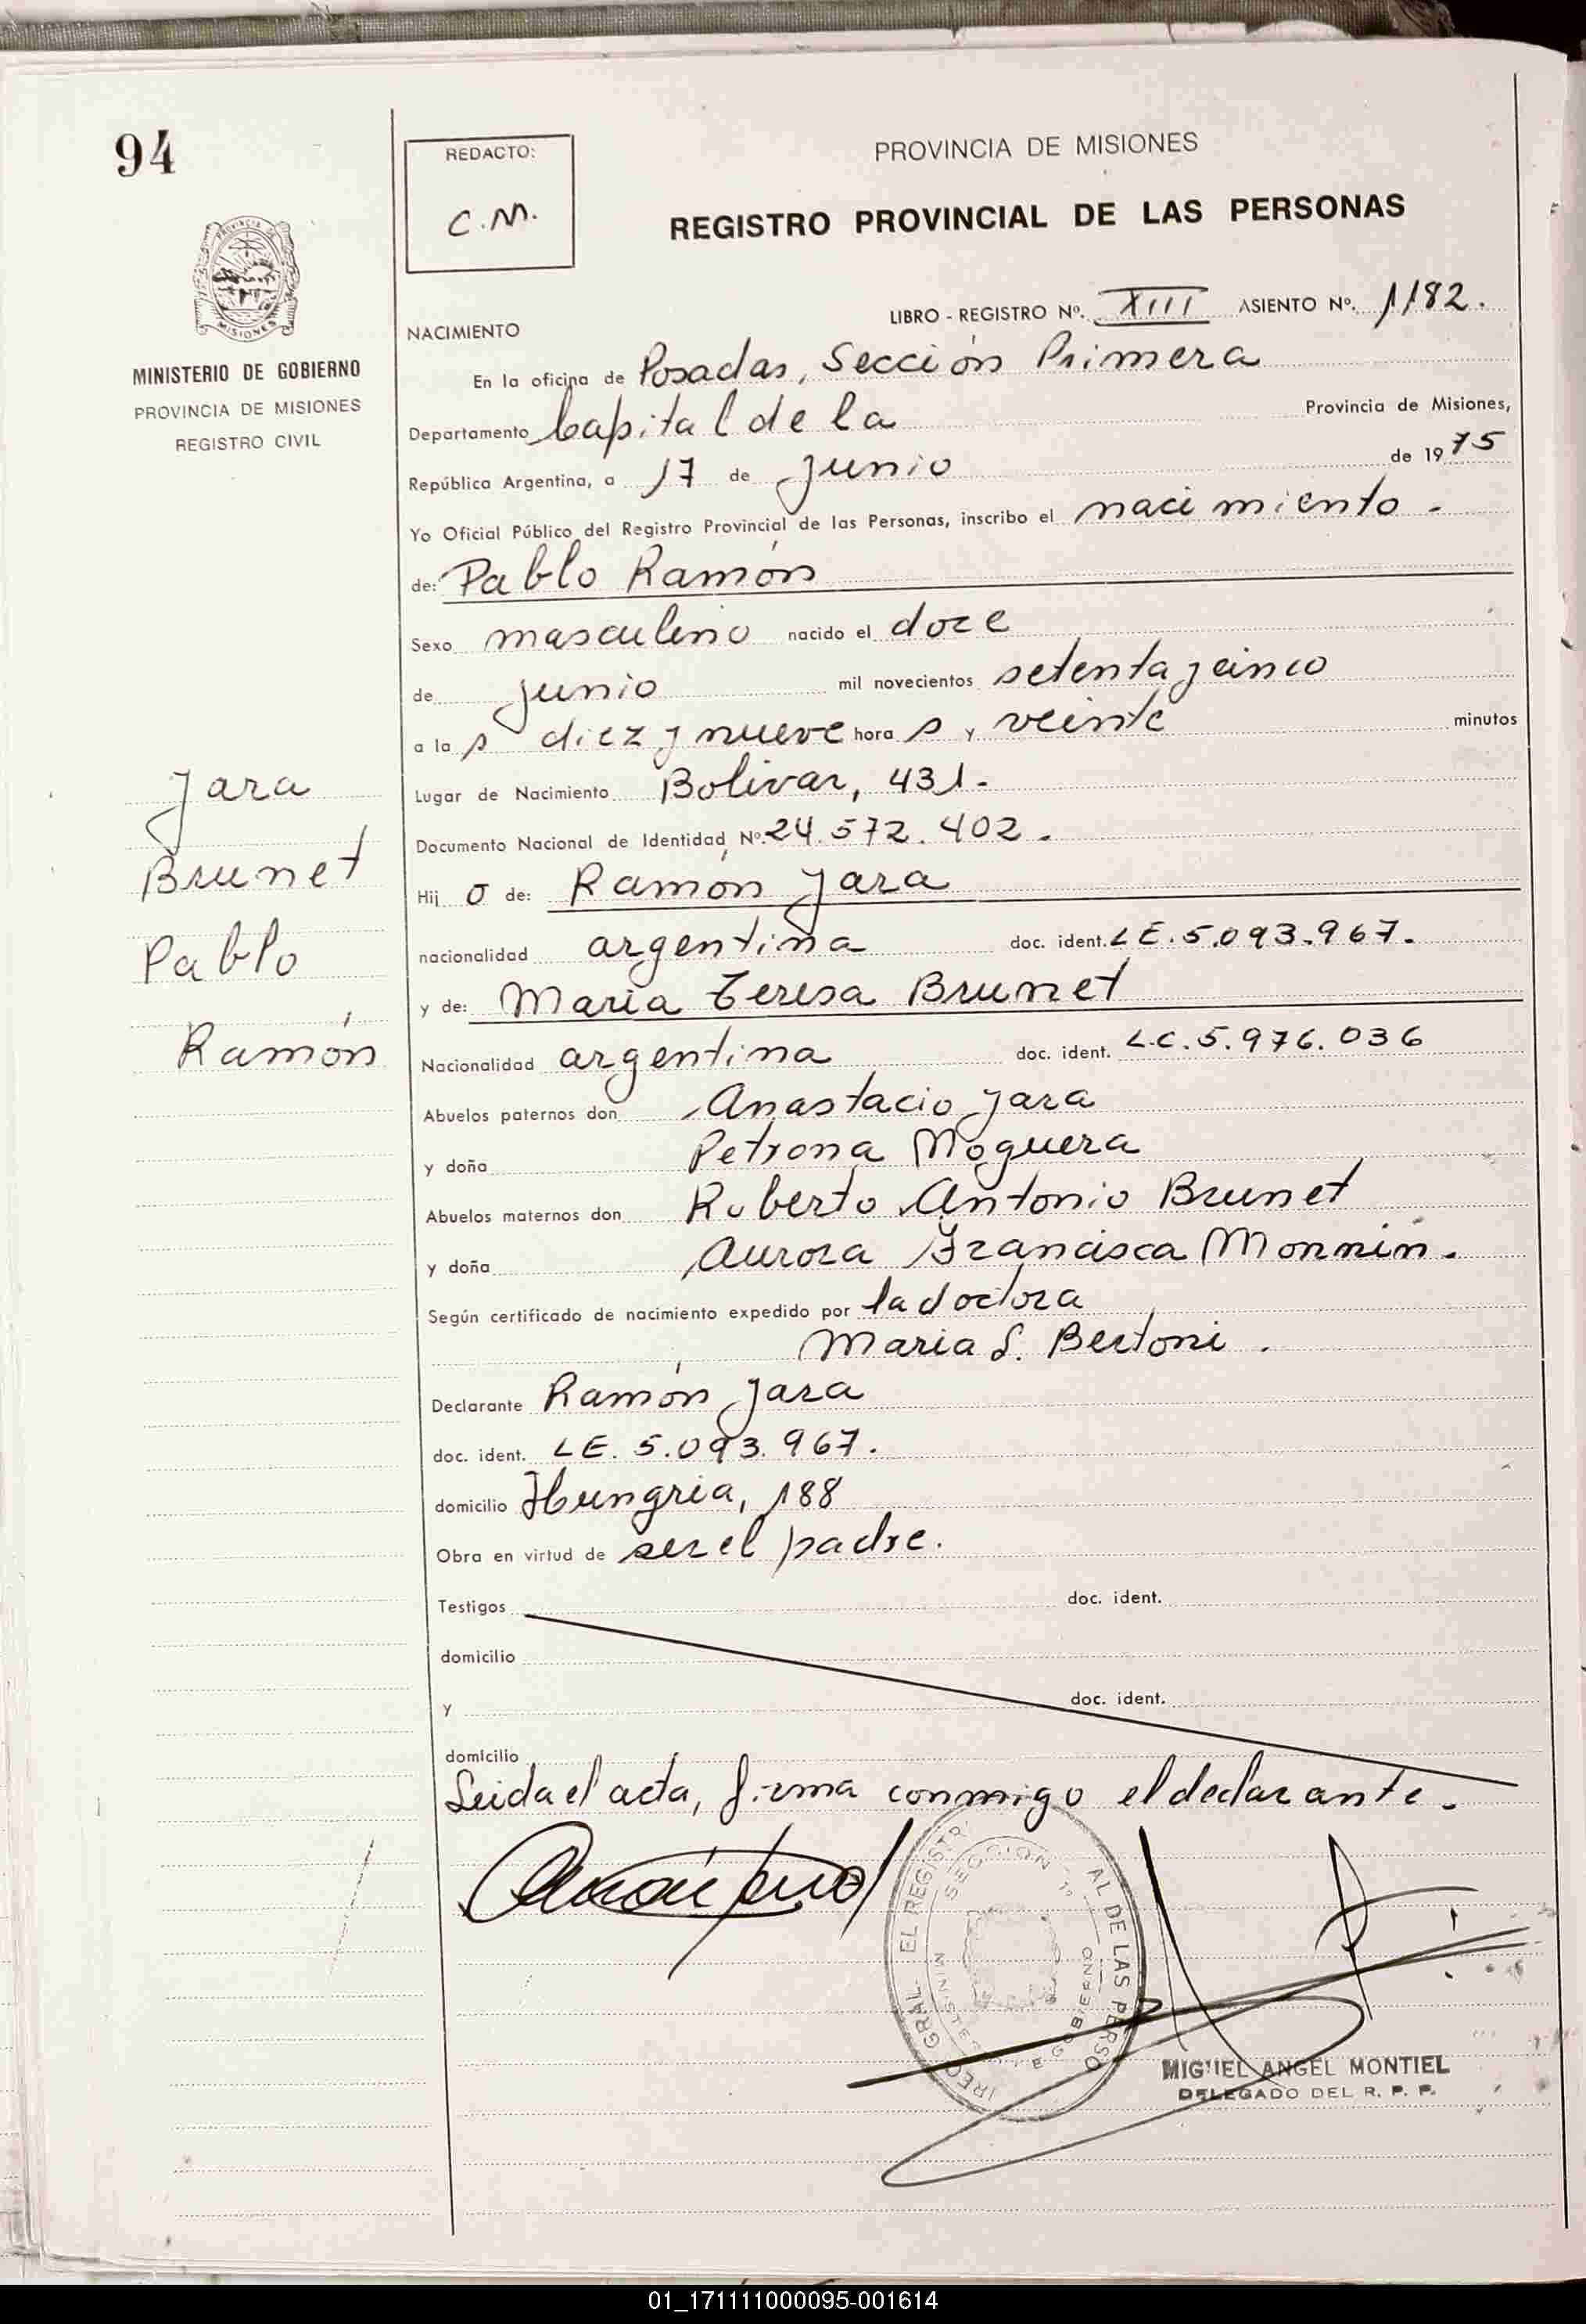 94
REDACTO:
C.M.
PROVINCIA DE MISIONES
REGISTRO PROVINCIAL DE LAS PERSONAS
MISIONES
MINISTERIO DE GOBIERNO
PROVINCIA DE MISIONES
REGISTRO CIVIL
LIBRO - REGISTRO Nº. XIII ASIENTO Nº. 1182.
NACIMIENTO
En la oficina de Posadas, Sección Primera
Departamento Capital de la Provincia de Misiones,
República Argentina, a 17 de Junio de 1975
Yo Oficial Público del Registro Provincial de las Personas, inscribo el nacimiento.
de: Pablo Ramón
Sexo masculino nacido el doce
de junio mil novecientos setenta y cinco
a las diez y nueve horas y veinte minutos
Lugar de Nacimiento Bolivar, 431.
Documento Nacional de Identidad, Nº. 24.572.402.
Hijo de: Ramón Jara
nacionalidad argentina doc. ident. LE. 5.093.967.
y de: Maria Teresa Brunet
Nacionalidad argentina doc. ident. L.C. 5.976.036
Abuelos paternos don Anastacio Jara
y doña Petrona Noguera
Abuelos maternos don Roberto Antonio Brunet
y doña Aurora Francisca Monnin.
Según certificado de nacimiento expedido por la doctora
Maria S. Bertoni.
Declarante Ramón Jara
doc. ident. LE. 5.093.967.
domicilio Hungria, 188
Obra en virtud de ser el padre.
Testigos doc. ident.
domicilio
y doc. ident.
domicilio
Leida el acta, firma conmigo el declarante.
Jara
Brunet
Pablo
Ramón
SECCION 1º
MIGUEL ANGEL MONTIEL
DELEGADO DEL R. P. P.
01_171111000095-001614